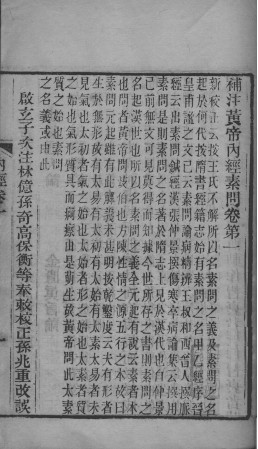 補注黃帝內經素問卷第一
新校正云按王氏不解所以名素問之義及素問之名
起於何代按隋書經籍志始有素問之名甲乙經序晉
皇甫謐之文已云素問論病精辨王叔和西晉人撰脉
經云出素問鍼經漢張仲景撰傷寒卒病論集云撰用
素問是則素問之名著於隋志上見於漢代也自仲景
已前無文可見莫得而知據今世所存之書則素問之
名起漢世也所以名素問之義全元起有說云素者本
也問者黃帝問岐伯也方陳性情之源五行之本故曰
素問元起雖有此解義未甚明按乾鑿度云夫有形者
生於無形故有太易有太初有太始有太素太易者未
見氣也太初者氣之始也太始者形之始也太素者質
之始也氣形質具而痾瘵由是萌生故黃帝問此太素
質之始也素問
之名義或由此
啟玄子次注林億孫奇高保衡等奉敕校正孫兆重改誤
內經卷一